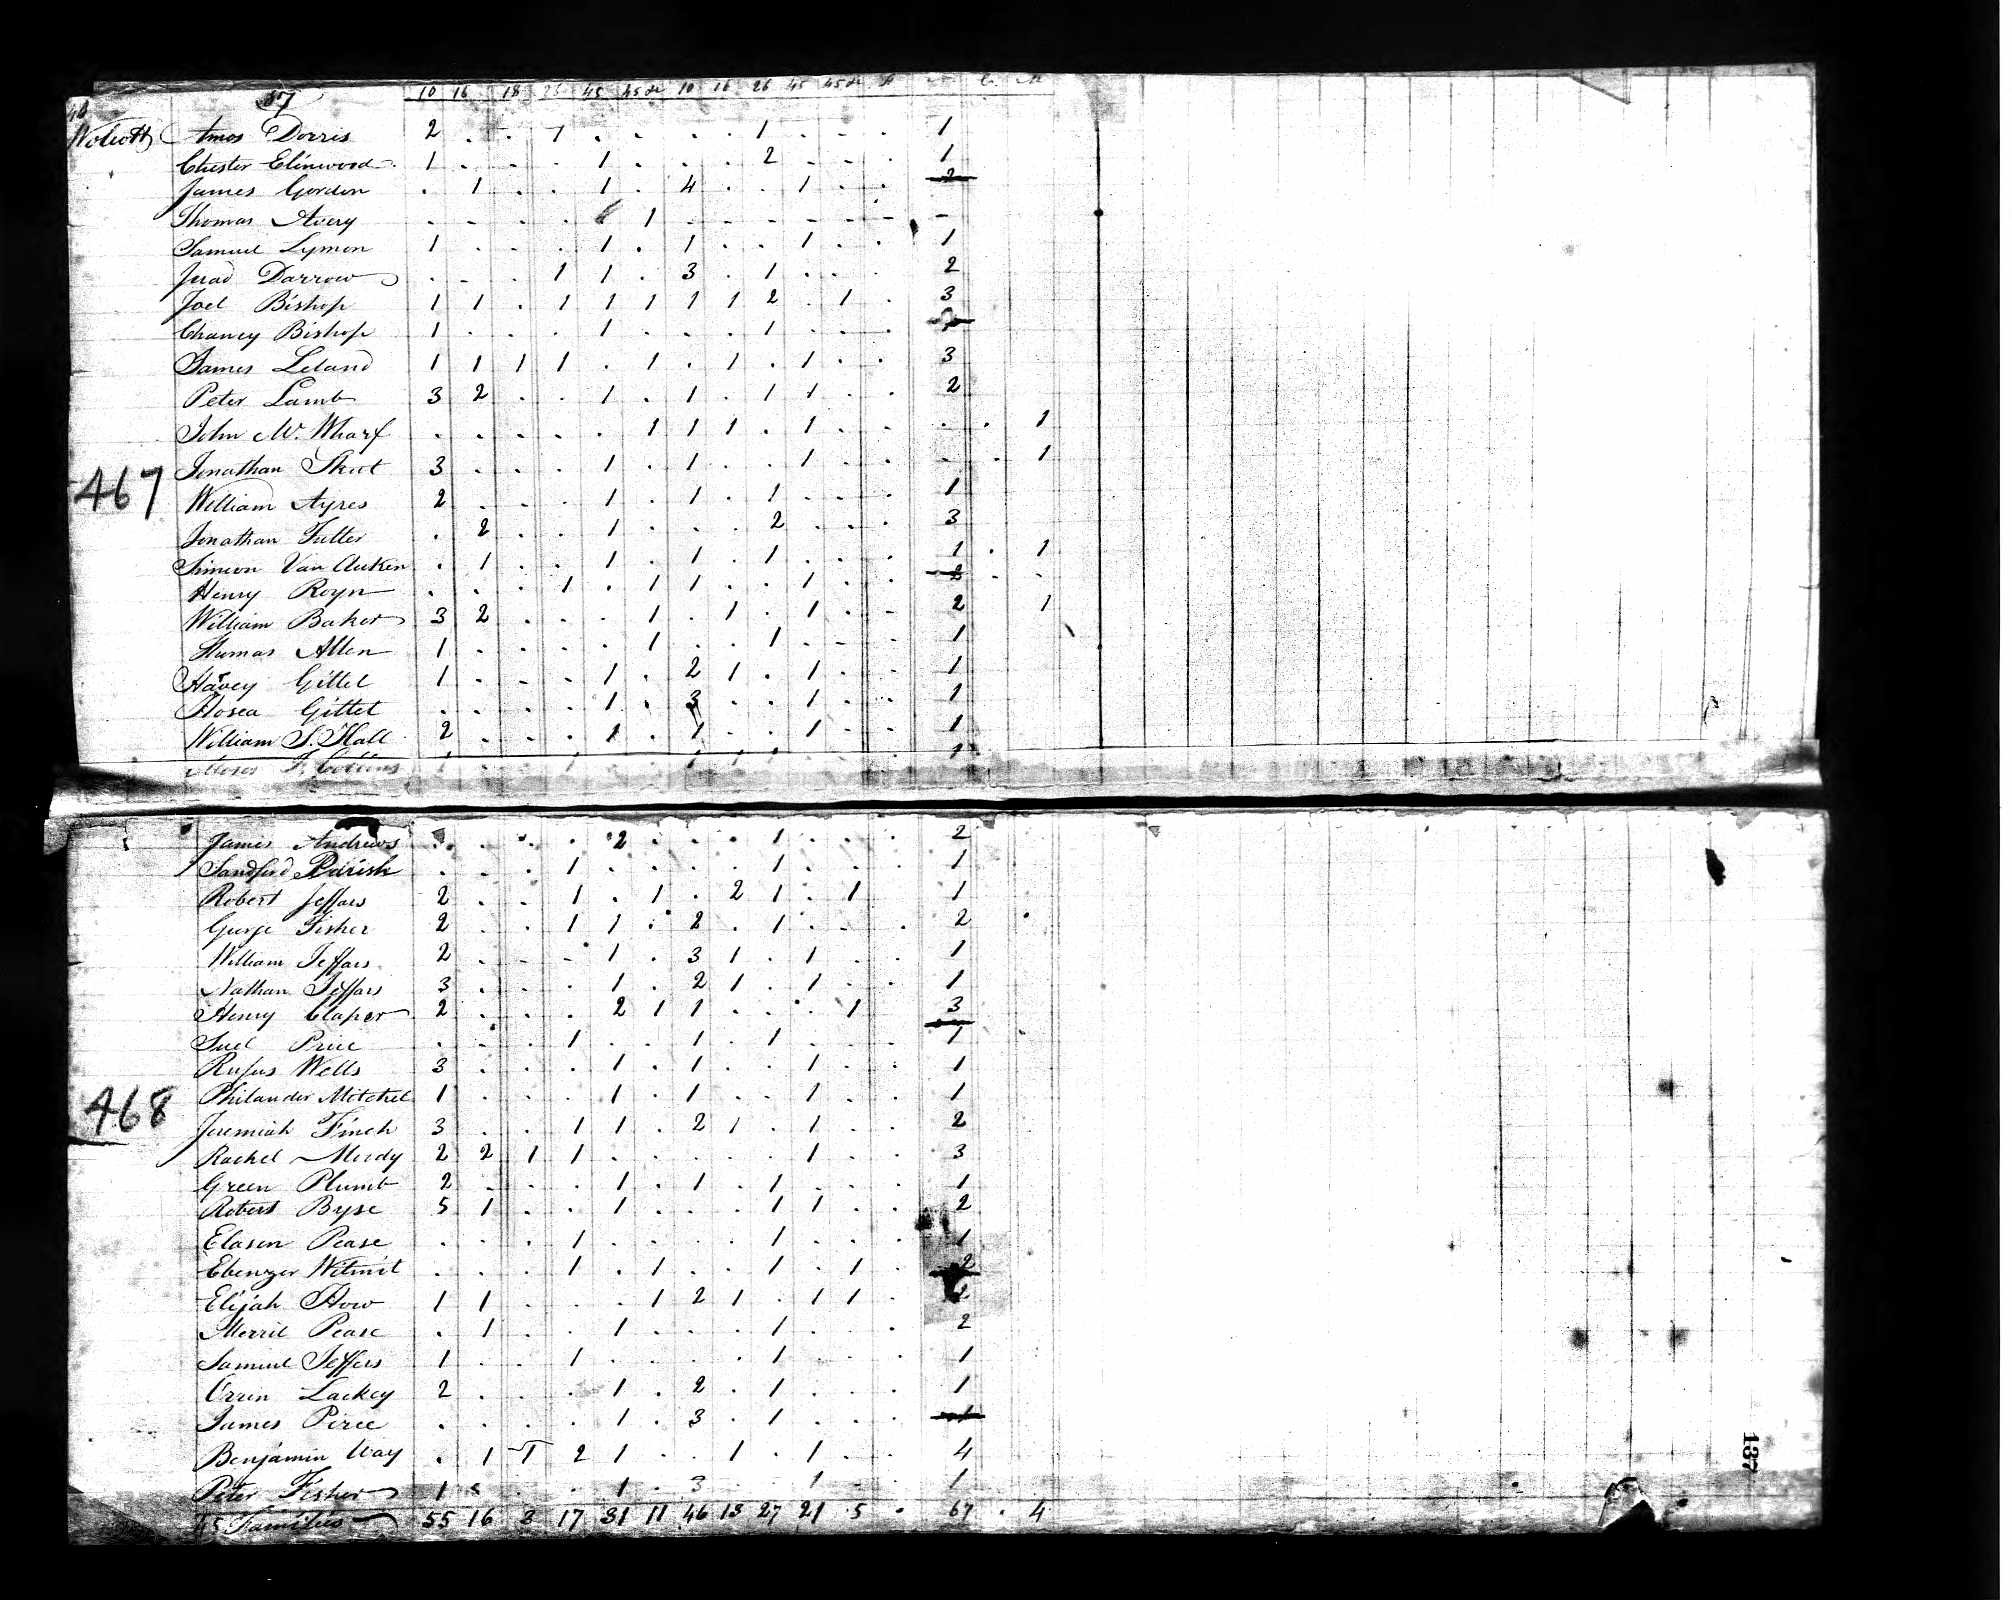 57 10 16 18 26 45 45 10 16 26 45 45
Wolcott Amos Dorris 2 . . 1 . . . . 1 . . . 1
Chester Elinwood 1 . . . 1 . . . 2 . . . 1
James Gordon . 1 . . 1 . 4 . . 1 . . 2
Thomas Avery . . . . . 1 . . . . . . .
Samuel Lymon 1 . . . 1 . 1 . . 1 . . 1
Darrow . . . 1 1 . 3 . 1 . . . 2
Joel Bishop 1 1 . 1 1 1 1 1 2 . 1 . 3
Chancy Bishop 1 . . . 1 . . . 1 . . .
James Leland 1 1 1 1 . 1 . 1 . 1 . . 3
Peter Lamb 3 2 . . 1 . 1 . 1 1 . . 2
John Mc. Wharf . . . . . 1 1 1 . 1 . . . . 1
Jonathan 3 . . . 1 . 1 . . 1 . . . . 1
467
William Ayres 2 . . . 1 . 1 . 1 . . . 1
Jonathan Fuller . 2 . . 1 . . . 2 . . . 3
Simeon Van Auken . 1 . . 1 . 1 . 1 . . . 1 . 1
Henry . . . 1 . 1 1 . . 1 . . 2 . .
William Baker 3 2 . . . 1 . 1 . 1 . . 2 1
Thomas Allen 1 . . . . 1 . . 1 . . 1
Harvey Gillet 1 . . . 1 . 2 1 . 1 . . 1
Hosea Gillet . . . . 1 . 3 . . 1 . . 1
William S. Hall 2 . . . 1 . 1 . . 1 . . 1
Moses F. Collins 1 . . 1 . . 1 1 1 . . . 1
James Andrews . . . . 2 . . . 1 . . . 2
Sandford Parish . . . 1 . . . . 1 . . . 1
Robert Jeffars 2 . . 1 . 1 . 2 1 . 1 1
George Fisher 2 . . 1 1 . 2 . 1 . . . 2 .
William Jeffars 2 . . . 1 . 3 1 . 1 . . 1
Nathan Jeffars 3 . . . 1 . 2 1 . 1 . . 1
Henry Claper 2 . . . 2 1 1 . . . 1 3
Price . . . 1 . . 1 . 1 . . . 1
Rufus Wells 3 . . . 1 . 1 . . 1 . . 1
468
Philander Mitchel 1 . . . 1 . 1 . . 1 . . 1
Jeremiah Finch 3 . . 1 1 . 2 1 . 1 . . 2
Rachel Moody 2 2 1 1 . . . . . 1 . . 3
Green Plumb 2 . . . 1 . 1 . 1 . . . 1
Robert Byse 5 1 . . 1 . . . 1 1 . . 2
Elason Pease . . . 1 . . . . 1 . . . 1
Ebenzer . . . 1 . 1 . . 1 . 1 . 2
Elijah How 1 1 . . . 1 2 1 . 1 1 . 2
Merril Pease . 1 . . 1 . . . 1 . . . 2
Samuel Jeffers 1 . . 1 . . . . 1 . . . 1
Orrin Lackey 2 . . . 1 . 2 . 1 . . . 1
James Pirce . . . . 1 . 3 . 1 . . . 1
Benjamin Way . 1 1 2 1 . . 1 . 1 . . 4
Peter Fisher 1 . . . 1 . 3 . . 1 . . 1
45 Families 55 16 3 17 31 11 46 13 27 21 5 . 67 . 4
137